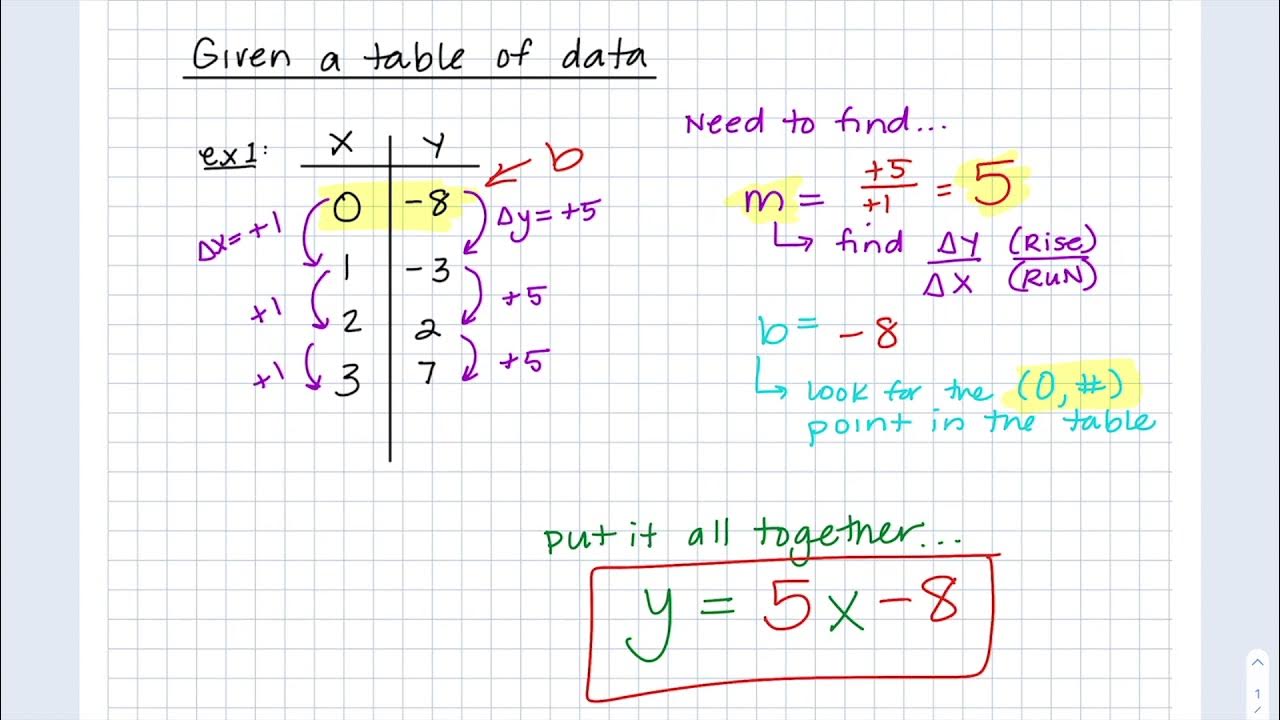 Given a table of data
ex1:
X Y
0 -8
1 -3
2 2
3 7
Δx=+1
+1
+1
Δy=+5
+5
+5
b
Need to find...
m = +5/+1 = 5
find ΔY/ΔX (Rise)/(RUN)
b = -8
look for the (0,#)
point in the table
put it all together...
y = 5x-8
1